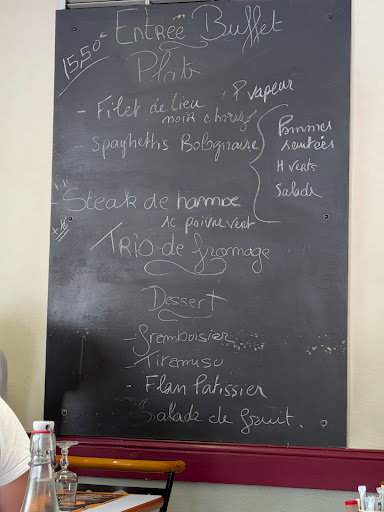 15,50€
Entrée Buffet
Plats
- Filet de lieu P vapeur
noir chorizo
Spaghettis Bolognaise
Pommes
sautées
H verts
Salade
- Steak de
sc poivre vert
TRIO de fromage
Dessert
- Framboisier
- Tiramisu
- Flan Patissier
Salade de fruit.